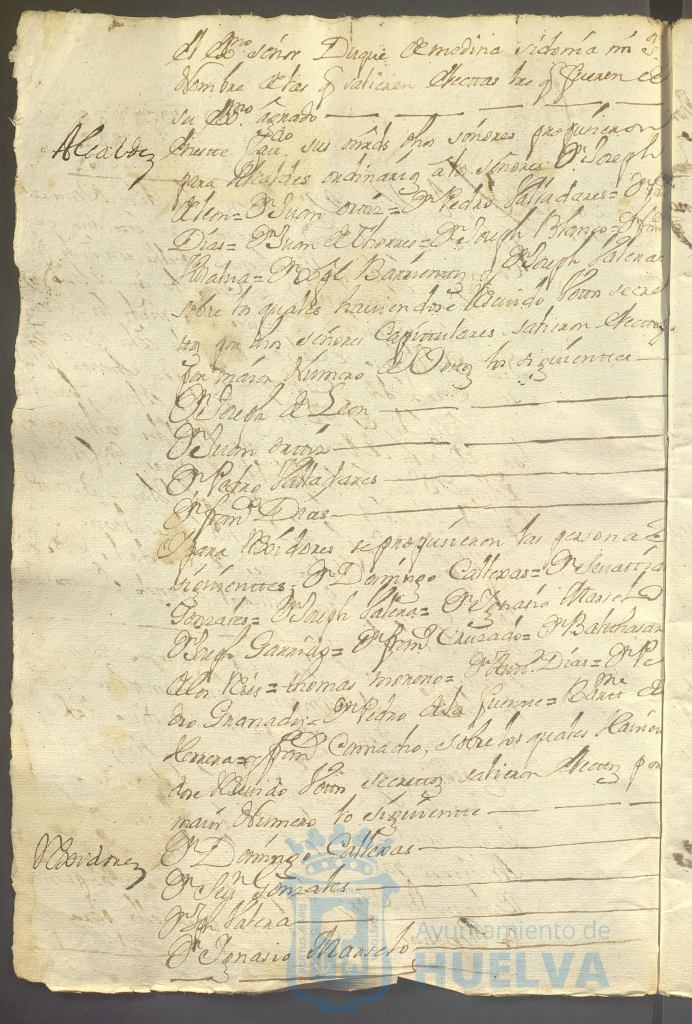 el Exmo señor Duque de medina sidonia mi Sr
Nombre de las q salieren electas las q fueren de
su Exmo agrado
Alcaldes
sus mrds dhos señores propusieron
para Alcaldes ordinarios a los señores Dn Joseph
de leon = Dn Juan ortiz = Dn Pedro Valladares = Dn fran
Dias = Dn Juan de Thorres = Dn Joseph Blanco = Dn
= Dn Barrientos y Dn Joseph Valena
sobre los quales haviendose Recivido Votos secre
tos por dhos señores Capitulares salieron electos
por maior Numero de Votos los siguientes
Dn Joseph de Leon
Dn Juan ortiz
Dn Pedro Valladares
Dn franco Dias
Y para Rexidores se propusieron las personas
siguientes, Dn Domingo Callexas = Dn Sevastian
Gonzales = Dn Joseph Valena = Dn Ignasio Marselo
Dn Joseph Garrido = Dn franco Cruzado = Dn Balthasar
de los Rios = thomas moreno = Dn Dias = Dn Pe
dro Granado = Dn Pedro de la fuente = Bartme de
Herrera = y franco Camacho, sobre los quales Havien
dose Recivido Votos secretos salieron electos por
maior Numero los siguientes
Rexidores
Dn Domingo Callexas
Dn Sevn Gonzales
Dn Jph Valena
Dn Ignasio Marselo
Ayuntamiento de
HUELVA